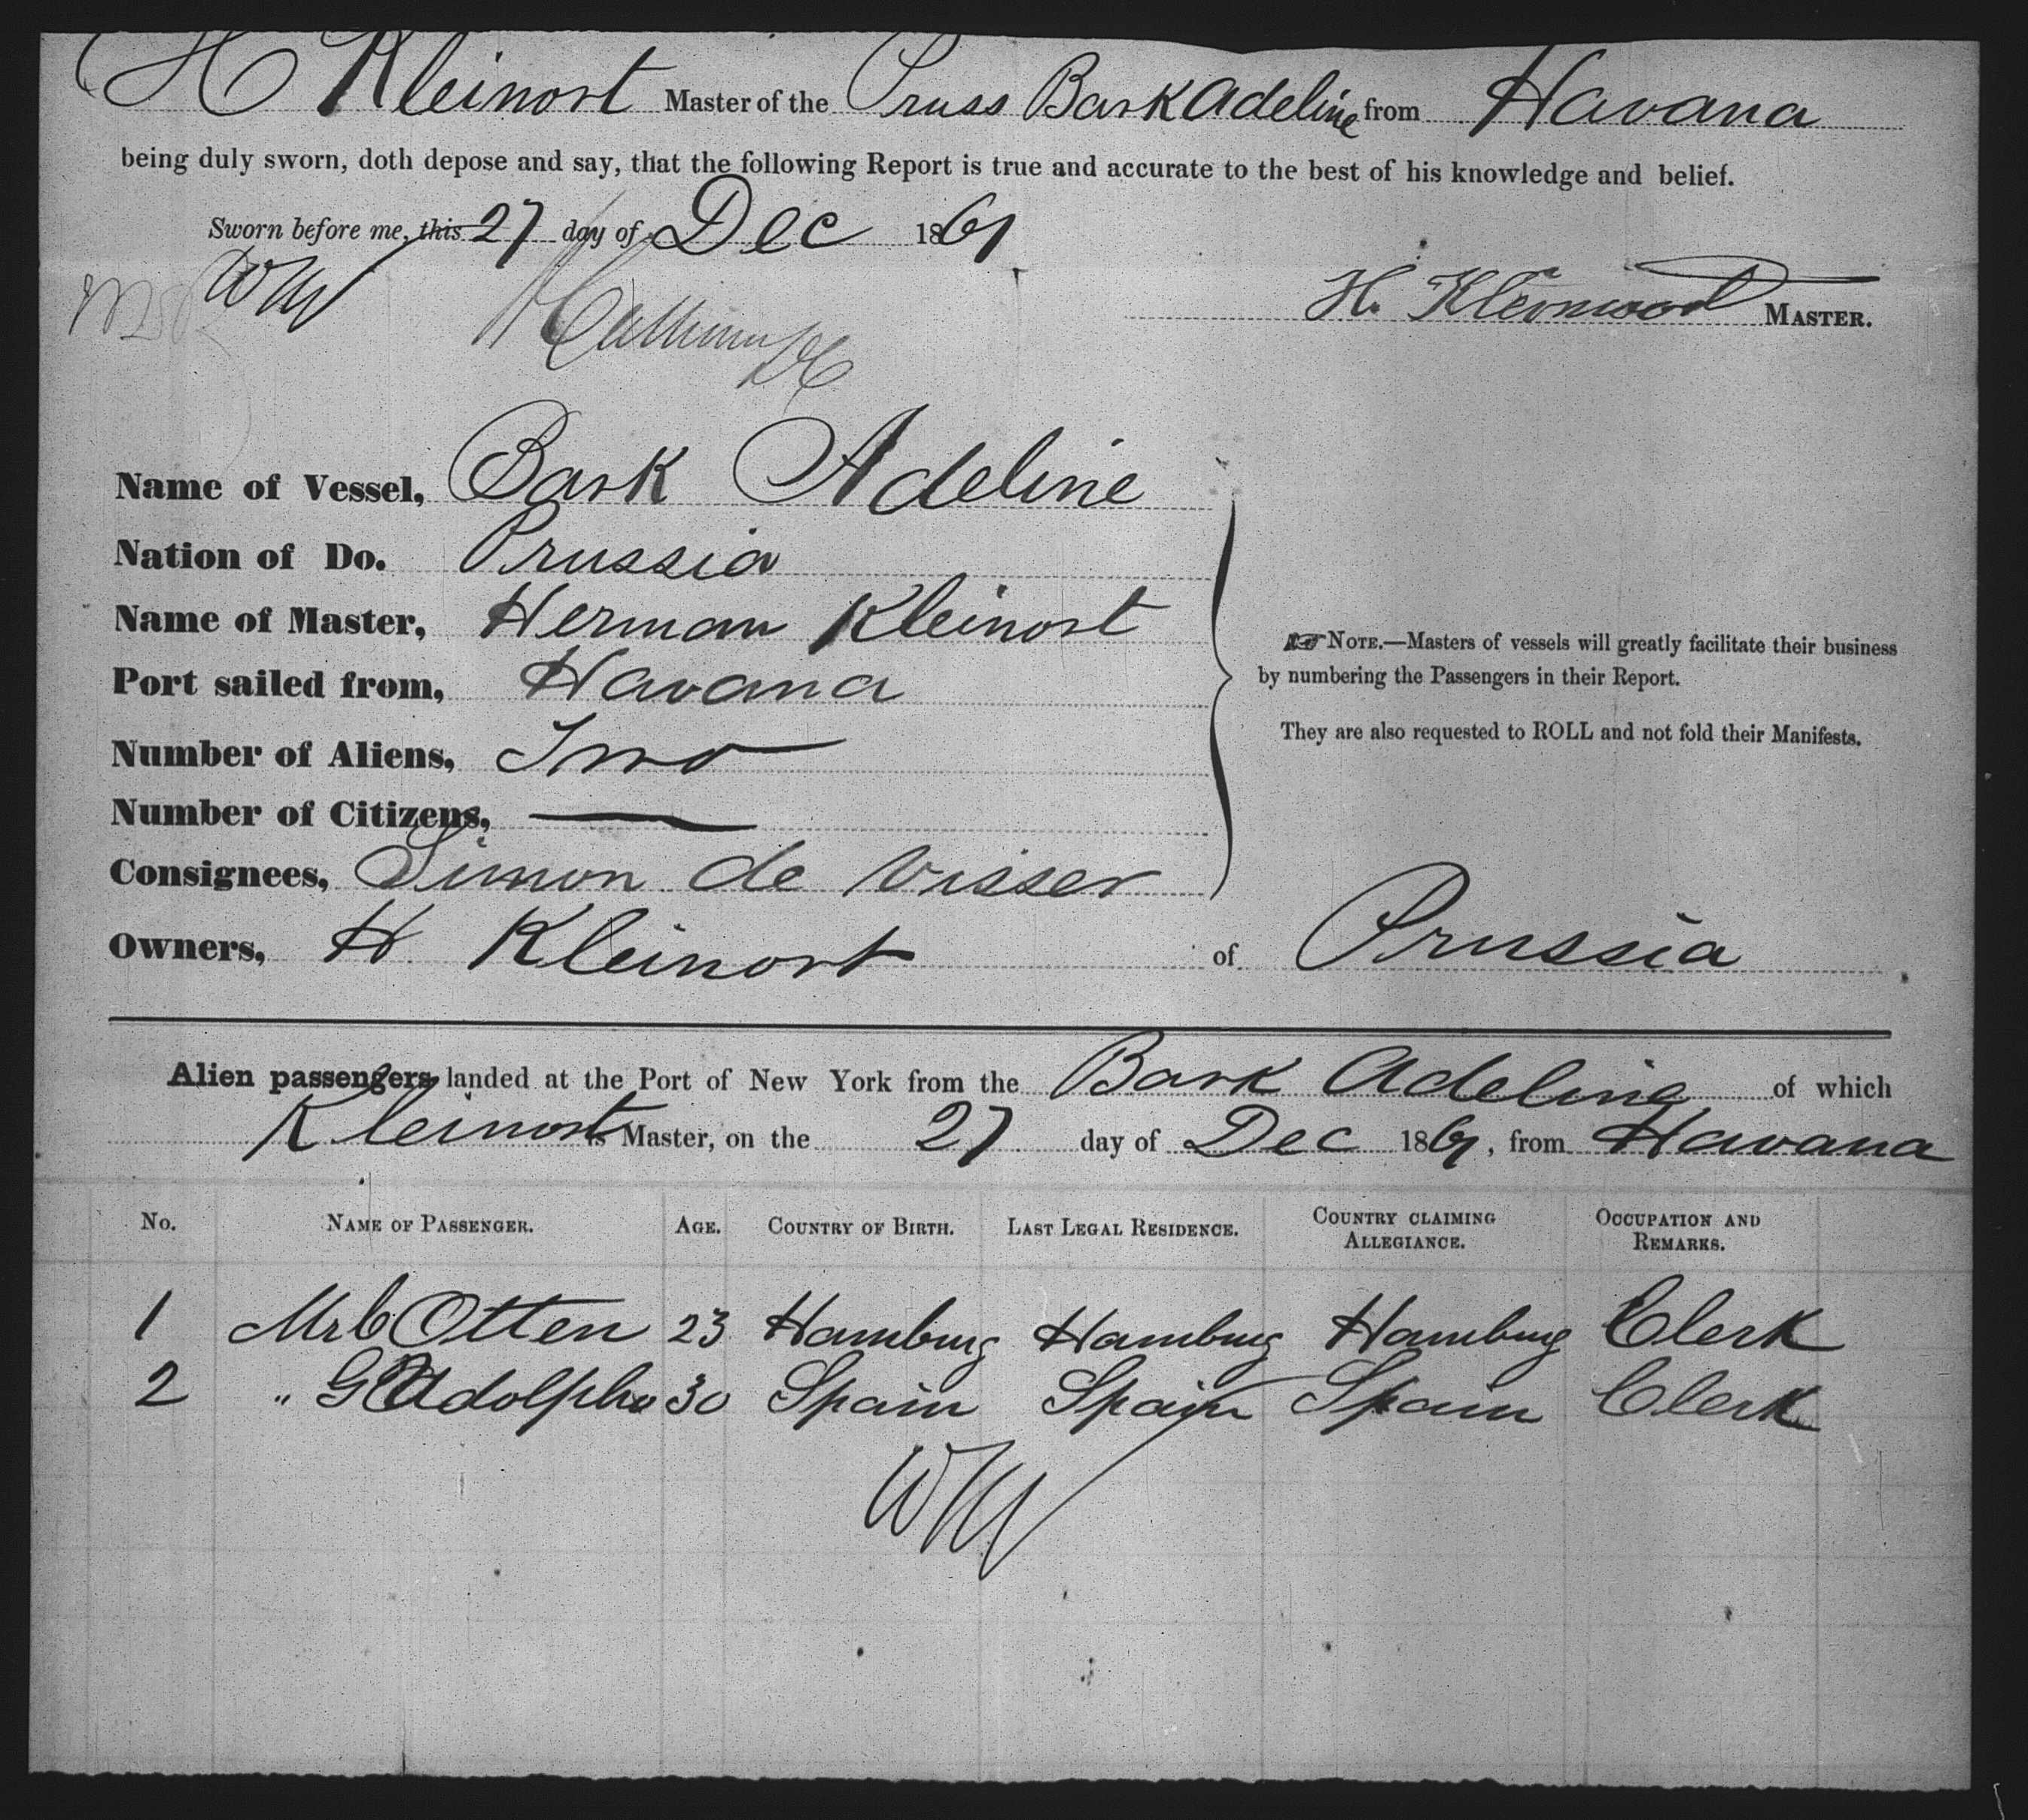 H Kleinort Master of the Pruss Bark Adeline from Havana
being duly sworn, doth depose and say, that the following Report is true and accurate to the best of his knowledge and belief.
Sworn before me, this 27 day of Dec 1861
H. MASTER.
Name of Vessel, Bark Adeline
Nation of Do. Prussia
Name of Master, Herman Kleinort
Port sailed from, Havana
Number of Aliens, Two
Number of Citizens, —
Consignees, Simon de Visser
Owners, H Kleinort of Prussia
☞ NOTE.—Masters of vessels will greatly facilitate their business
by numbering the Passengers in their Report.
They are also requested to ROLL and not fold their Manifests.
Alien passengers landed at the Port of New York from the Bark Adeline of which
Kleinort is Master, on the 27 day of Dec 1861, from Havana
No. NAME OF PASSENGER. AGE. COUNTRY OF BIRTH. LAST LEGAL RESIDENCE. COUNTRY CLAIMING ALLEGIANCE. OCCUPATION AND REMARKS.
1 Mr C Otten 23 Hamburg Hamburg Hamburg Clerk
2 " G Adolpho 30 Spain Spain Spain Clerk